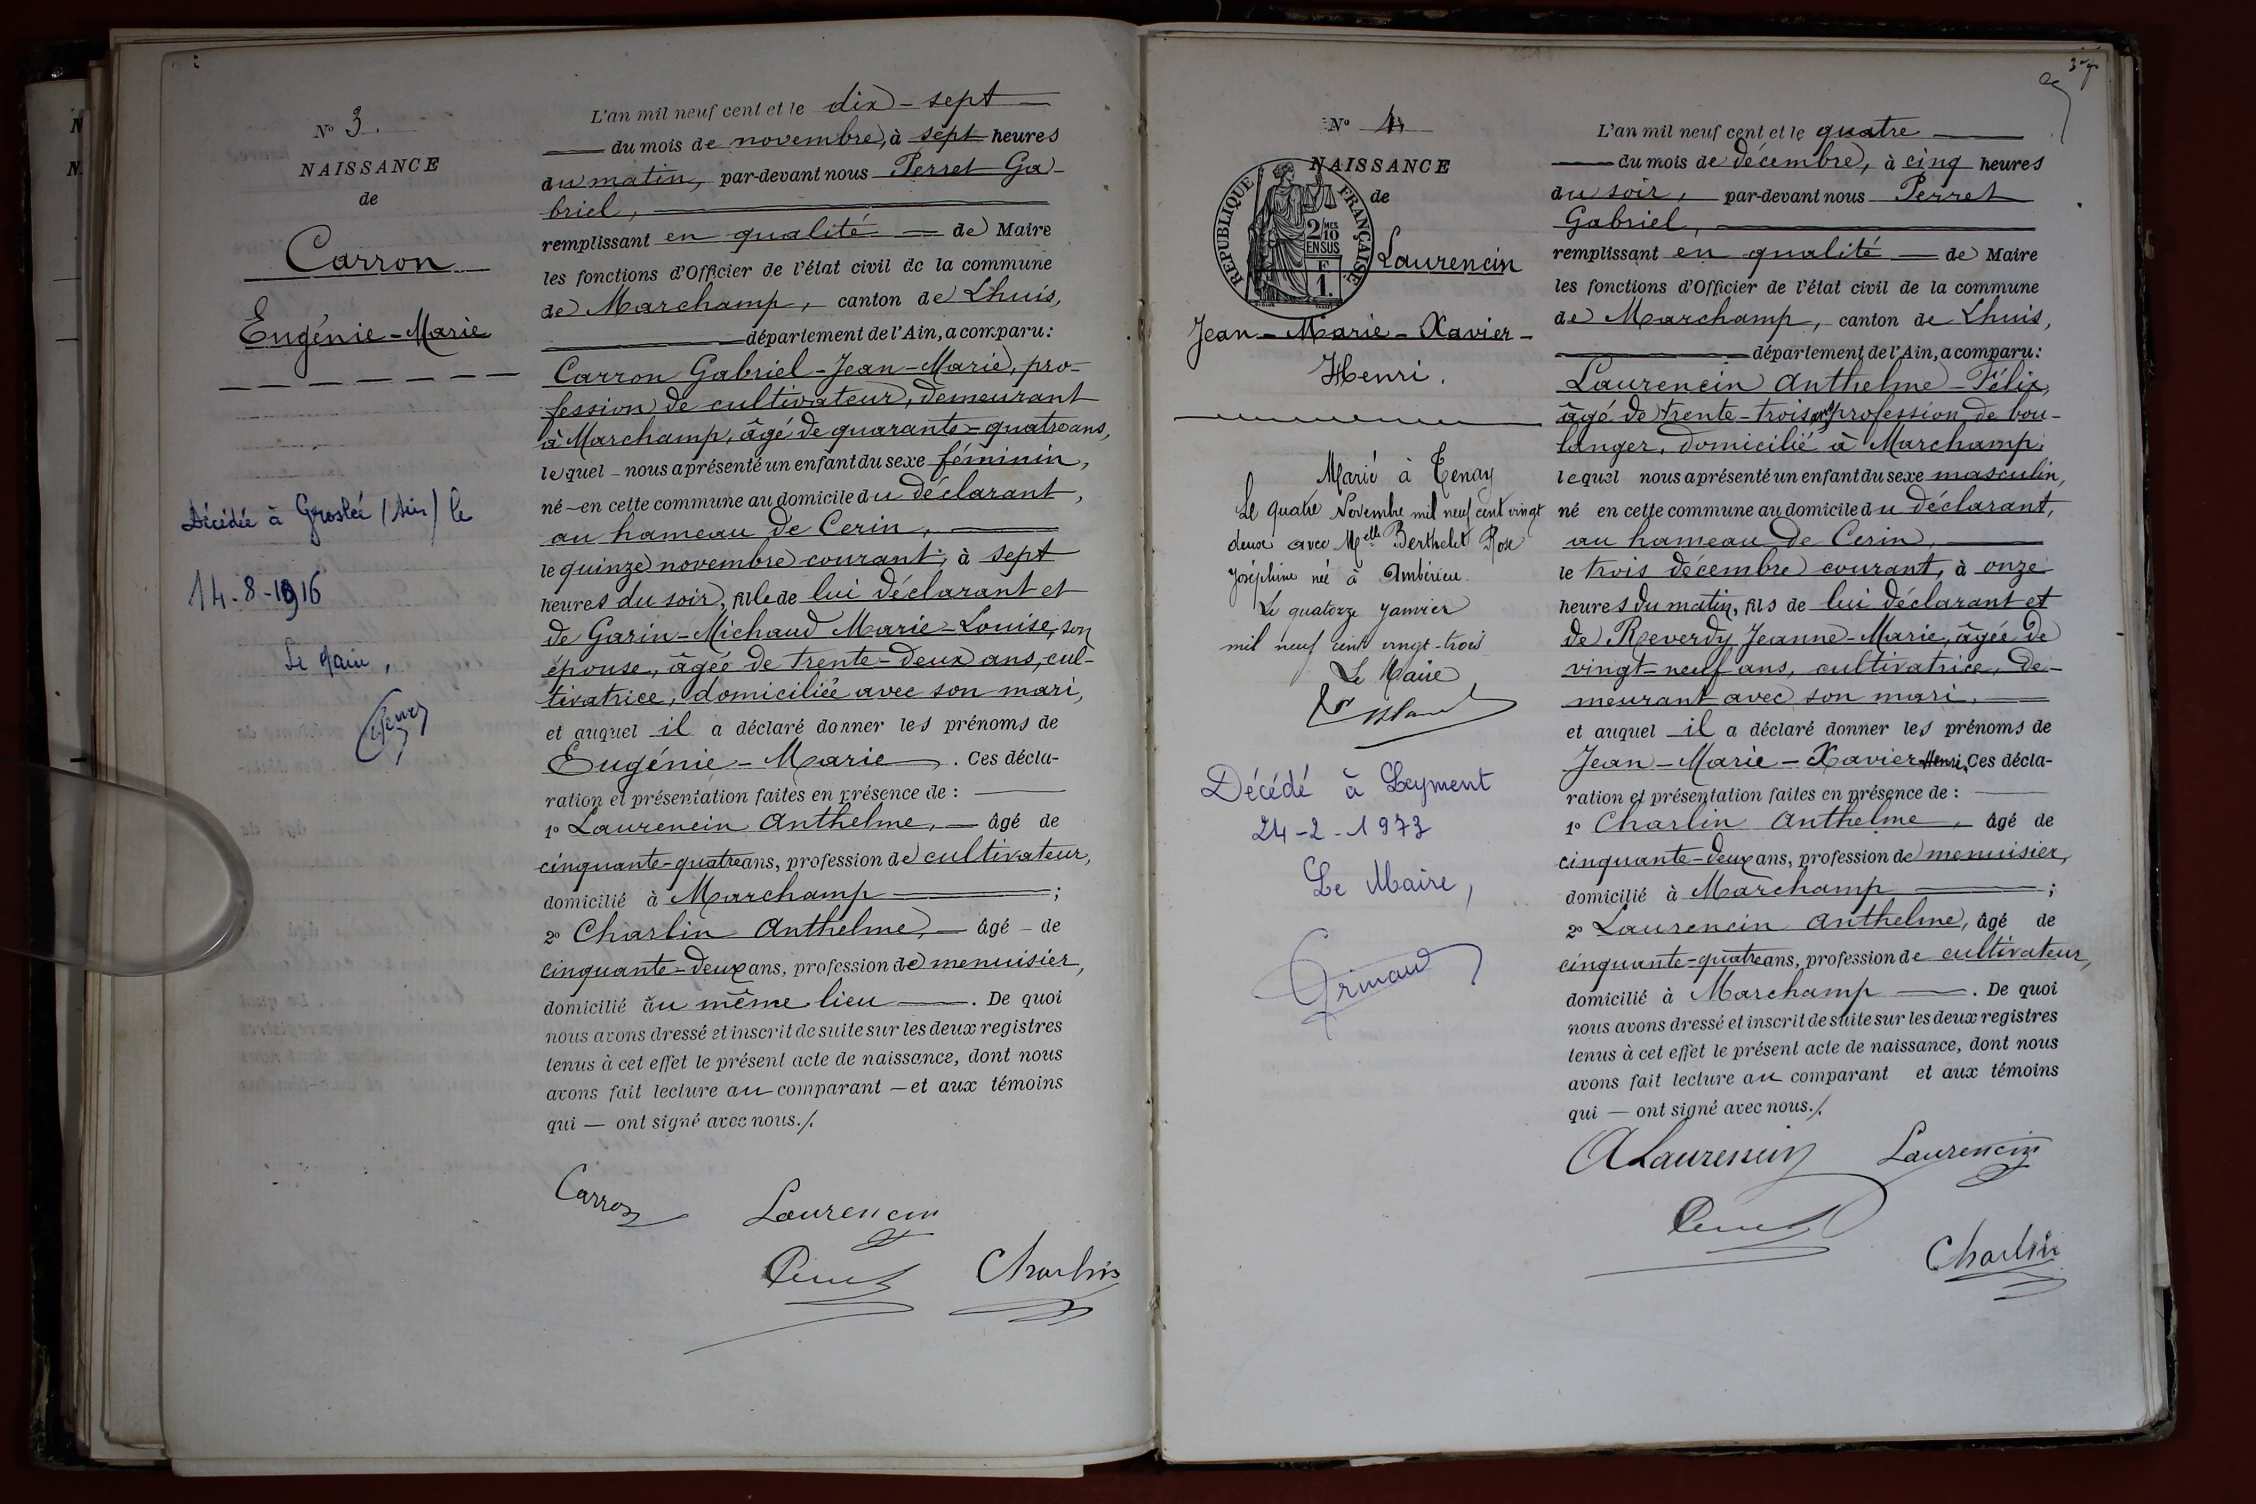 N° 3.
NAISSANCE
de
Carron
Eugénie-Marie
Décédée à Groslée (Ain) le
14-8-1916
Le Maire,
L'an mil neuf cent et le dix-sept
du mois de novembre, à sept heures
du matin, par-devant nous Perret Ga-
briel,
remplissant en qualité de Maire
les fonctions d'Officier de l'état civil de la commune
de Marchamp, canton de Lhuis,
département de l'Ain, a comparu:
Carron Gabriel-Jean-Marie, pro-
fession de cultivateur, demeurant
à Marchamp, âgé de quarante-quatre ans,
lequel nous a présenté un enfant du sexe féminin,
né en cette commune au domicile du déclarant,
au hameau de Cerin,
le quinze novembre courant, à sept
heures du soir, fille de lui déclarant et
de Garin-Michaud Marie-Louise, son
épouse, âgée de trente-deux ans, cul-
tivatrice, domiciliée avec son mari,
et auquel il a déclaré donner les prénoms de
Eugénie-Marie. Ces décla-
ration et présentation faites en présence de :
1° Laurencin Anthelme, âgé de
cinquante-quatre ans, profession de cultivateur,
domicilié à Marchamp ;
2° Charlin Anthelme, âgé de
cinquante-deux ans, profession de menuisier,
domicilié au même lieu. De quoi
nous avons dressé et inscrit de suite sur les deux registres
tenus à cet effet le présent acte de naissance, dont nous
avons fait lecture au comparant et aux témoins
qui — ont signé avec nous./.
Carron
Laurencin
Perret
Charlin
N° 4
NAISSANCE
de
REPUBLIQUE FRANÇAISE
2/10 MES
EN SUS
F
1.
Laurencin
Jean-Marie-Xavier-
Henri.
Marié à Tenay
Le quatre Novembre mil neuf cent vingt
deux avec Melle Berthelet Rose
Joséphine née à Ambérieu.
Le quatorze janvier
mil neuf cent vingt-trois
Le Maire
Décédé à Leyment
24-2-1973
Le Maire,
Grinaud
L'an mil neuf cent et le quatre
du mois de décembre, à cinq heures
du soir, par-devant nous Perret
Gabriel,
remplissant en qualité de Maire
les fonctions d'Officier de l'état civil de la commune
de Marchamp, canton de Lhuis,
département de l'Ain, a comparu:
Laurencin Anthelme-Félix,
âgé de trente-trois ans, profession de bou-
langer, domicilié à Marchamp,
lequel nous a présenté un enfant du sexe masculin,
né en cette commune au domicile du déclarant,
au hameau de Cerin,
le trois décembre courant, à onze
heures du matin, fils de lui déclarant et
de Reverdy Jeanne-Marie, âgée de
vingt-neuf ans, cultivatrice, de-
meurant avec son mari,
et auquel il a déclaré donner les prénoms de
Jean-Marie-Xavier-Henri. Ces décla-
ration et présentation faites en présence de :
1° Charlin Anthelme, âgé de
cinquante-deux ans, profession de menuisier,
domicilié à Marchamp ;
2° Laurencin Anthelme, âgé de
cinquante-quatre ans, profession de cultivateur,
domicilié à Marchamp. De quoi
nous avons dressé et inscrit de suite sur les deux registres
tenus à cet effet le présent acte de naissance, dont nous
avons fait lecture au comparant et aux témoins
qui — ont signé avec nous./.
A Laurencin
Laurencin
Perret
Charlin